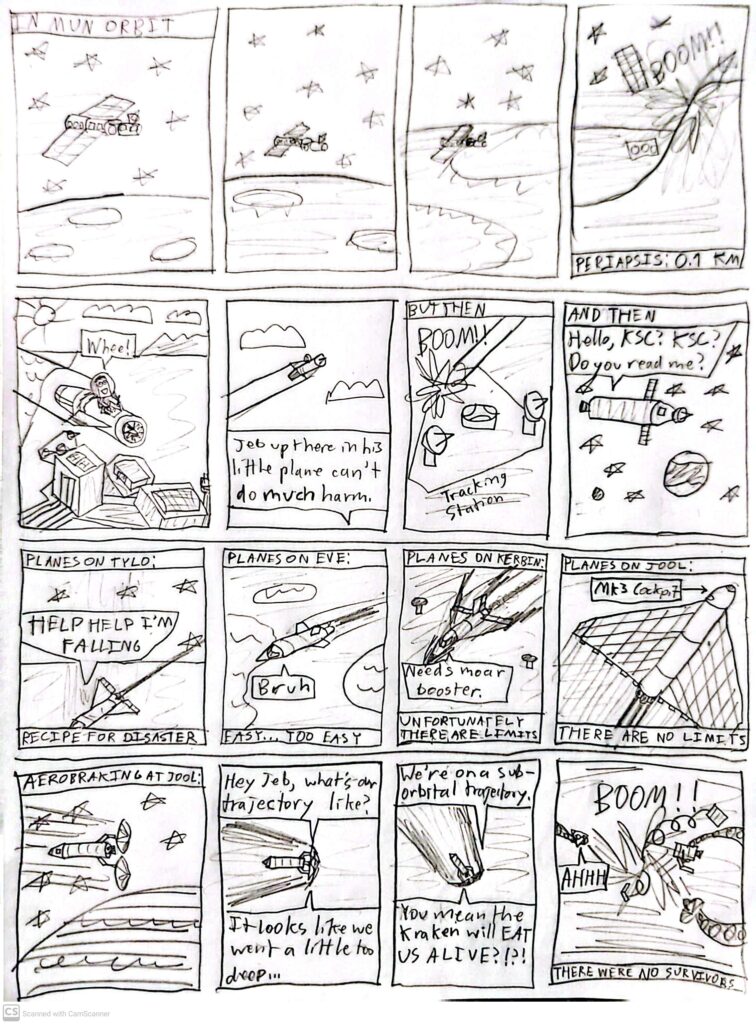 IN MUN ORBIT
BOOM!!
PERIAPSIS: 0.1 KM
Whee!
Jeb up there in his
little plane can't
do much harm.
BUT THEN
BOOM!!
Tracking
Station
AND THEN
Hello, KSC? KSC?
Do you read me?
PLANES ON TYLO:
HELP HELP I'M
FALLING
RECIPE FOR DISASTER
PLANES ON EVE:
Bruh
EASY... TOO EASY
PLANES ON KERBIN:
Needs moar
booster.
UNFORTUNATELY
THERE ARE LIMITS
PLANES ON JOOL:
MK3 Cockpit
THERE ARE NO LIMITS
AEROBRAKING AT JOOL:
Hey Jeb, what's our
trajectory like?
It looks like we
went a little too
deep...
We're on a sub-
orbital trajectory.
You mean the
Kraken will EAT
US ALIVE?!?!
BOOM!!
AHHH
THERE WERE NO SURVIVORS
CS Scanned with CamScanner